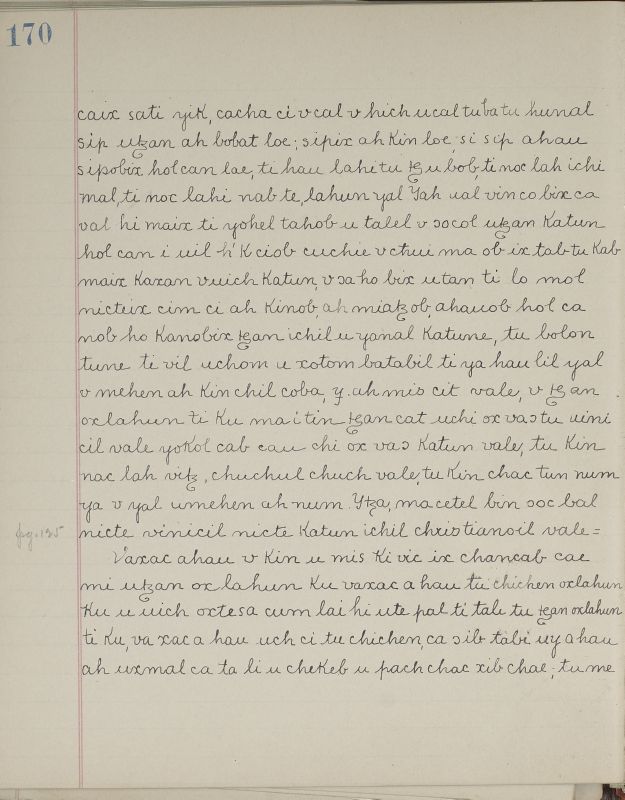 170
caix sati yik, cacha ci v cal v hich ucal tuba tu hunal
sip utzan ah bobat loe; sipix ah Kin loe, si sip ahau
sipobix holcan lae, ti hau lahi tu tz u bob, ti noc lah ichi
mal, ti noc lahi nab te, lahun yal Yah ual vinco bix ca
val hi maix ti yohel tahob u talel v ɔocol utzan Katun
hol can i uil h'K ciob cuchie v chui ma ob ix tab tu Kab
maix Kaxan vuich Katun, v ɔa ho bix utan ti lo mol
nicteix cim ci ah Kinob, ah miatz ob, ahauob hol ca
nob ho Kanobix tzan ichil u yanal Katune, tu bolon
tune ti vil uchom u xotom batabil ti ya hau lil yal
v mehen ah Kin chil coba, y. ah mis cit vale, v tz an
oxlahun ti Ku ma i tin tzan cat uchi ox vaɔ tu uini
cil vale yoKol cab cau chi ox vaɔ Katun vale, tu Kin
nac lah vitz, chuchul chuch vale, tu Kin chac tun num
ya v yal umehen ah num Ytza, ma cetel bin ɔoc bal
pg. 135
nicte vinicil nicte Katun ichil christianoil vale =
Vaxac ahau v Kin u mis Ki vic ix chancab cae
mi utzan ox lahun Ku vaxac a hau tu chichen oxlahun
Ku u uich oxtesa cum lai hi ute pal ti talu tu tzan oxlahun
ti Ku, va xac a hau uch ci tu chichen, ca ɔib tabi uy ahau
ah uxmal ca ta li u cheKeb u pach chac xib chac; tu me